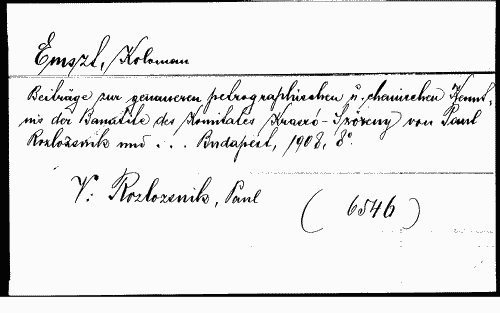 Emszt, Koloman
Beiträge zur genaueren petrographischen u. chemischen Kennt,
nis der Banatite des Komitates Krassó-Szörény von Paul
Rozlozsnik und . . . Budapest, 1908, 8°.
V: Rozlozsnik, Paul
(6546)